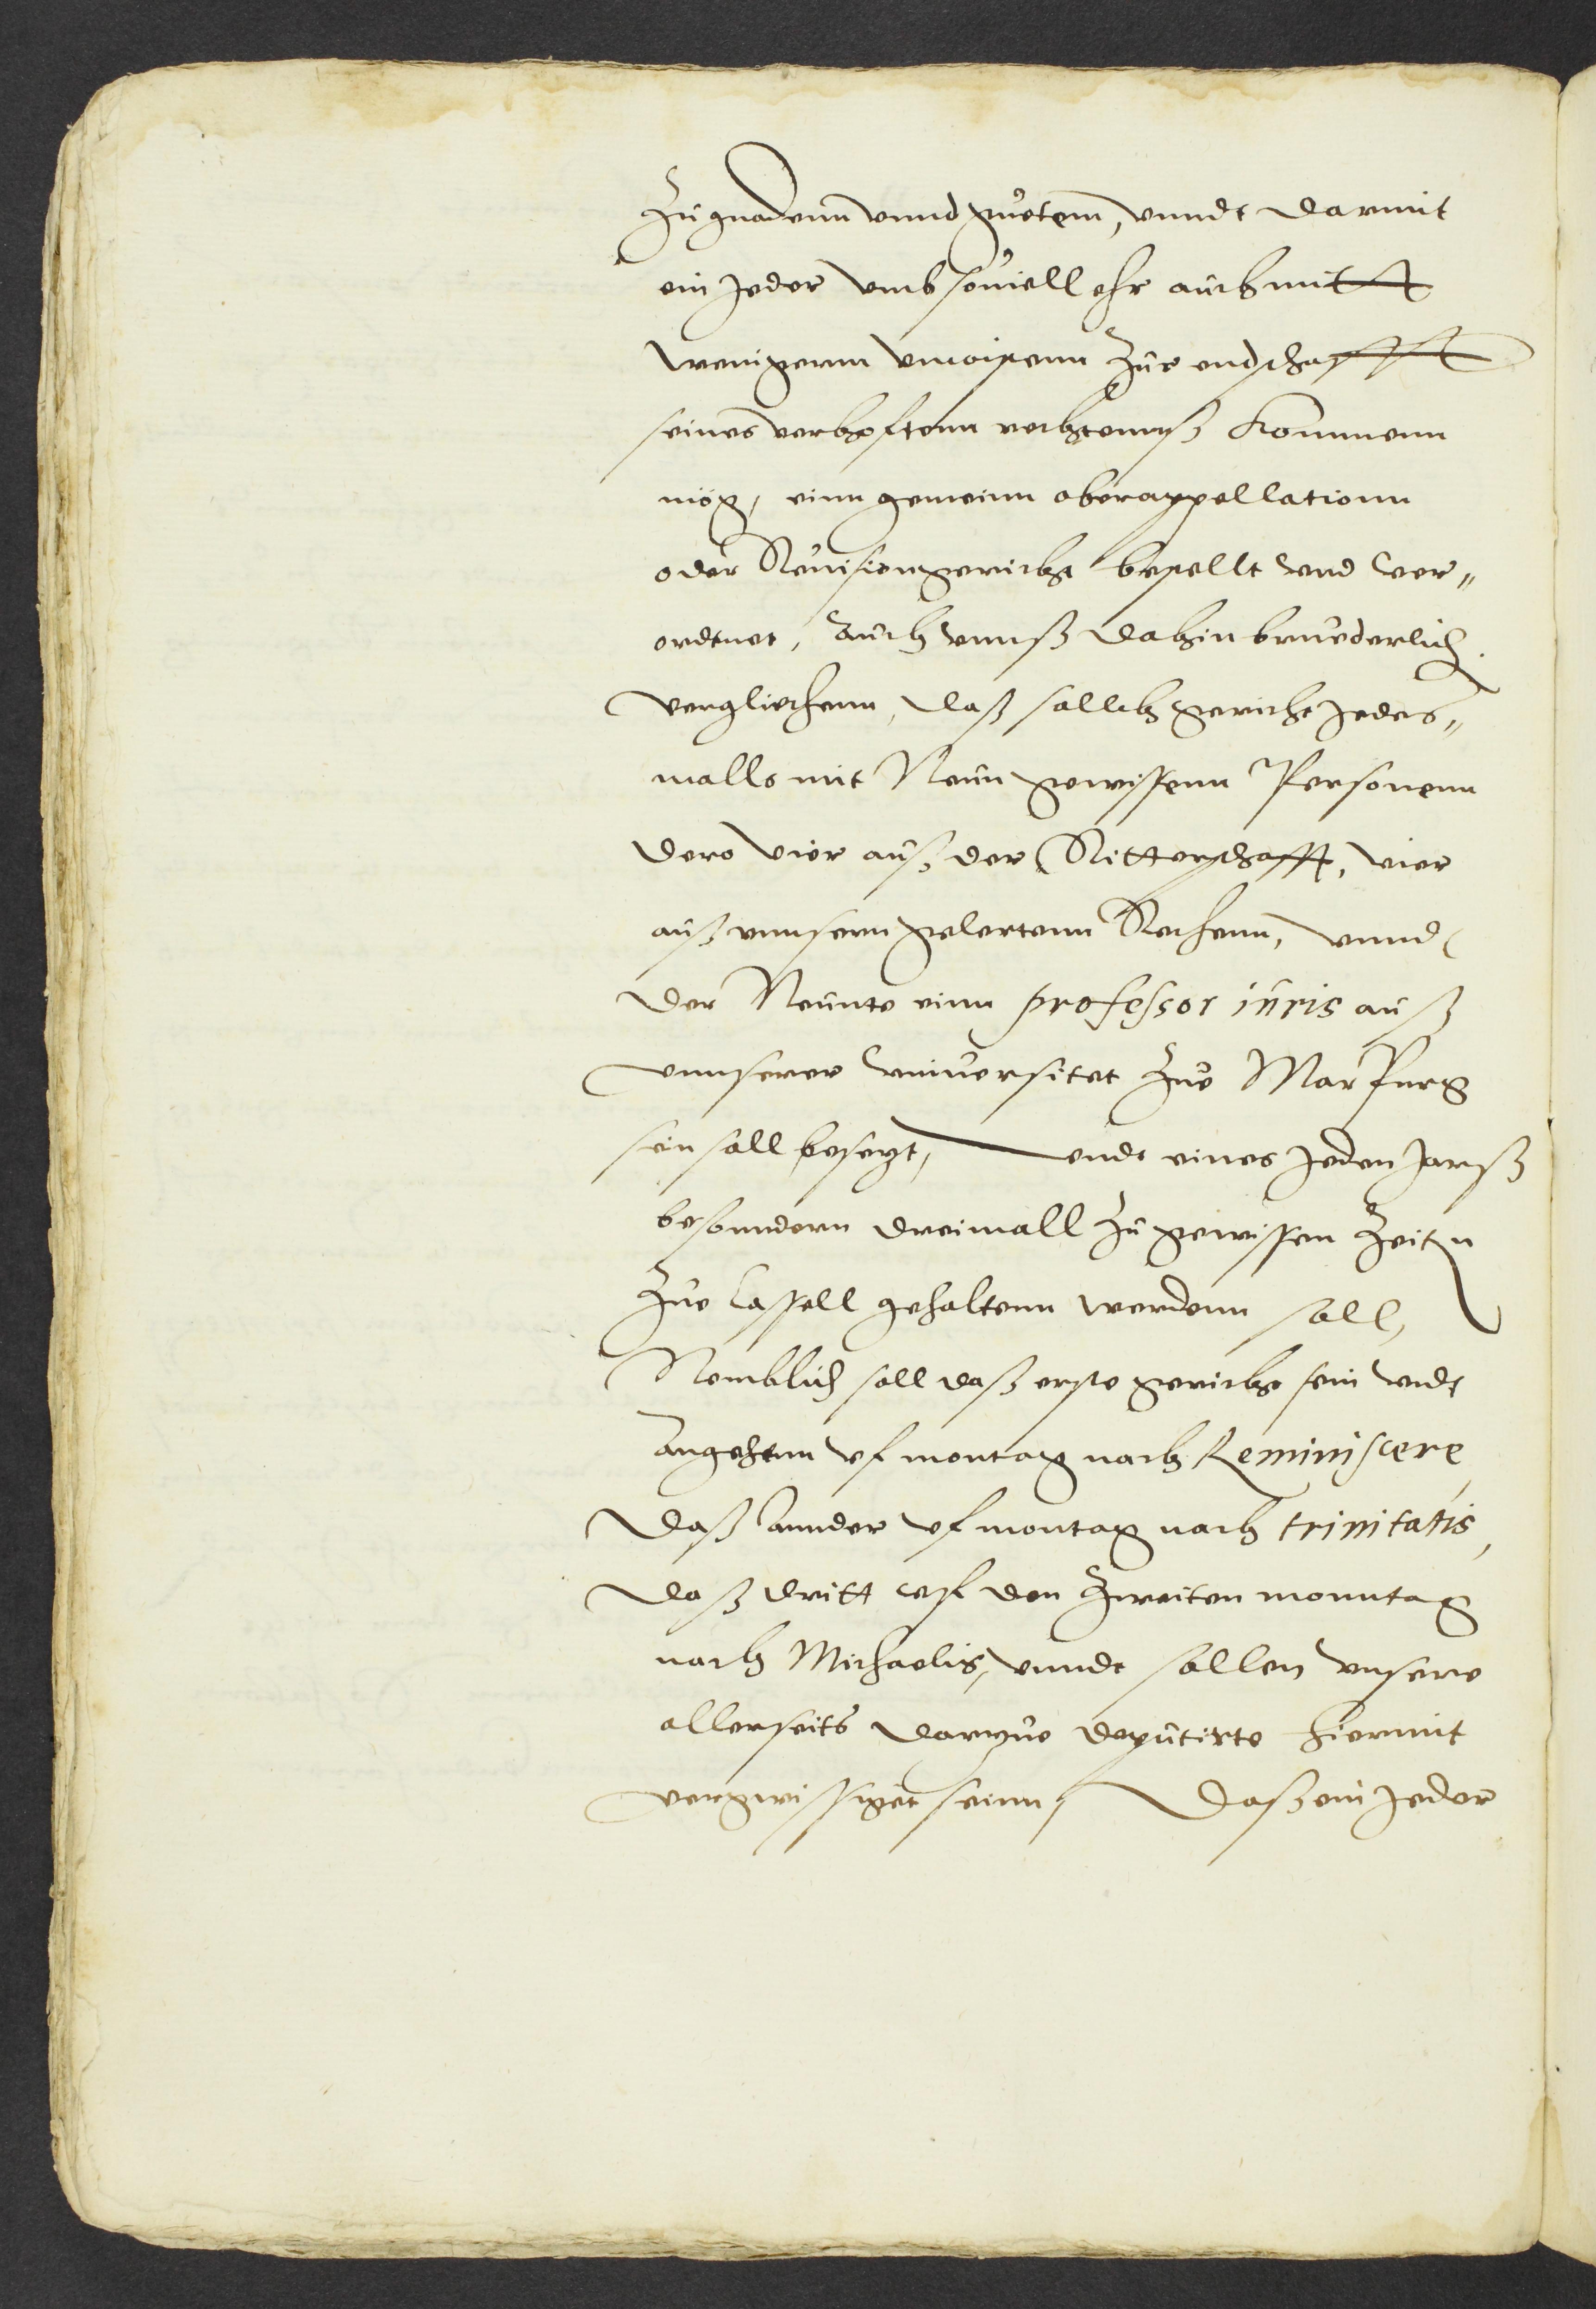 Zu gnadenn vnnd guetem, vnndt darmit
ein Jeder vmb souiell ehr auch mitt
wenigernn vncostenn Zur endschafft
seines verhofftenn rechtennß kommenn
mög, einn gemeinn oberappellationn
oder Reuisiongericht bestellt vnd ver„
ordtnet, Auch vnnß dahin bruederlich
verglichenn, daß sollch gericht Jedes„
malls mit Neun gewissenn Personenn
dero vier auß der Ritterschafft, vier
auß vnnsern gelertenn Rethenn, vnnd
der Neunte einn professor iuris auß
vnnserer vniuersitet Zue Marpurg
sein soll besetzt, vndt eines Jeden Jarß
besonndern dreimall Zu gewissen Zeiten
Zue Cassell gehaltenn werdenn soll,
Nemblich soll daß erste gericht sein vndt
Angehenn vf montag nach Reminiscere,
daß Annder vf montag nach trinitatis,
daß dritt vf den Zweiten monntag
nach Michaelis, vnndt sollen vnsere
allerseits darzue deputirte hiermit
vergwissiget seinn, Daß ein Jeder